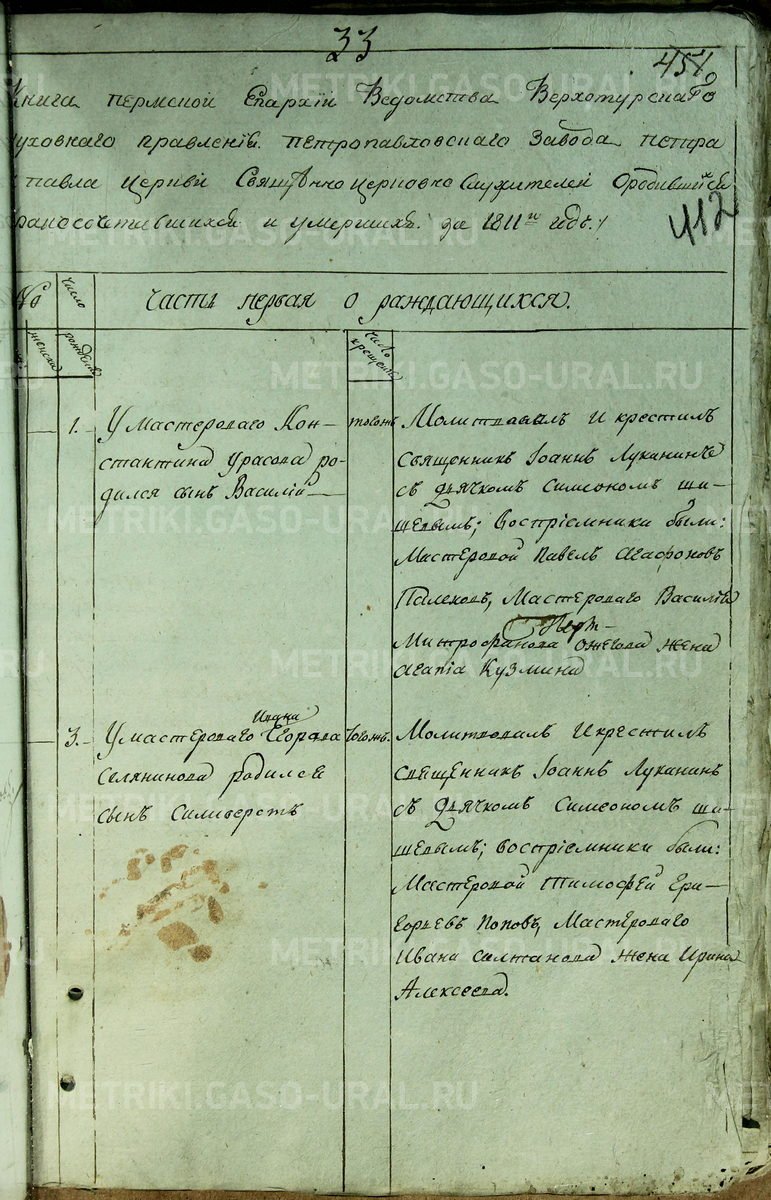 33
451
Книга пермской Епархiи Ведомства Верхотурскаго
уховнаго правленiя. петропавловскаго Завода петра
павла Церкви Священноцерковнослужителей Ородившихся
раносочетавшихся и умершихъ. за 1811й годъ.
412
№ число Часть первая о раждающихся.
женска рожденiя число крещенiя
1. У Мастероваго Кон–
стантина Урасова ро–
дился сынъ Василiй
тогожъ Молитвовалъ И крестилъ
священникъ Iоаннъ Луканинъ
съ Дьячкомъ Симеономъ ши–
шевымъ; воспрiемники были:
Мастеровой Павелъ Агафоновъ
Палеховъ, Мастероваго Василiя
Митрофанова Ожегова жена
Агапiя Кузмина
3. У мастероваго Ивана Егорова
Селянинова родился
сынъ Силиверстъ
тогожъ. Молитвовалъ Икрестилъ
священникъ Iоаннъ Луканинъ
съ Дьячкомъ Симеономъ ши–
шевымъ; воспрiемники были:
Мастеровой тимофей Гри–
горьевъ Поповъ, Мастероваго
Ивана Салтанова жена Ирина
Алексеева.
METRIKI.GASO-URAL.RU